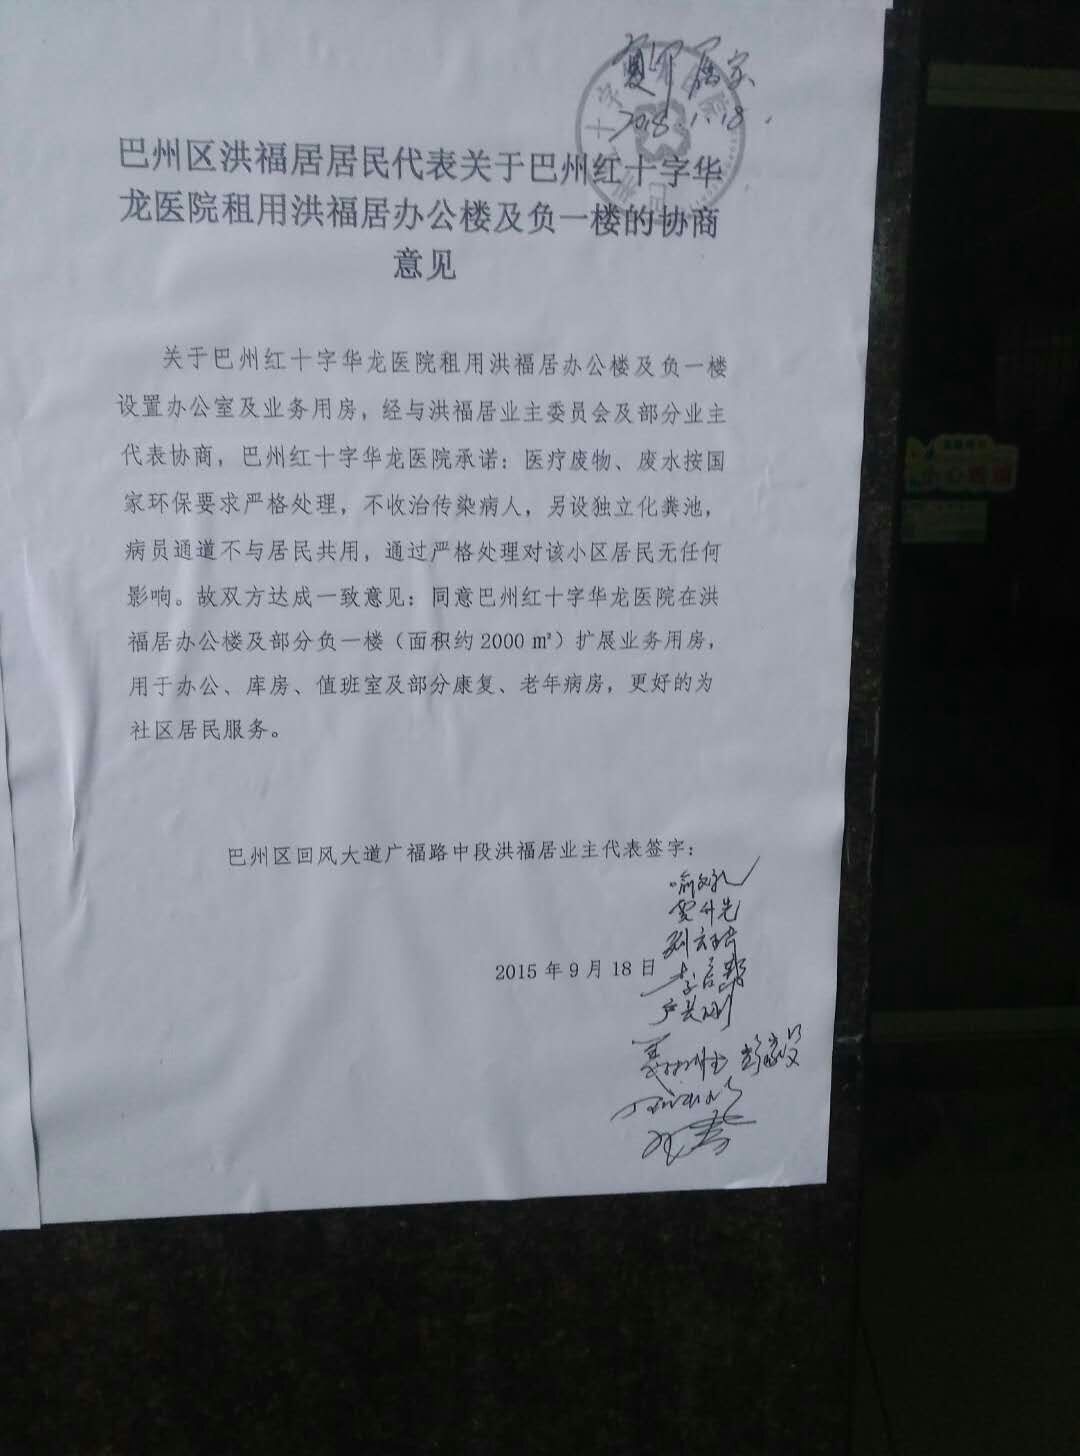 2018.1.18.
巴州区洪福居居民代表关于巴州红十字华
龙医院租用洪福居办公楼及负一楼的协商
意见
关于巴州红十字华龙医院租用洪福居办公楼及负一楼
设置办公室及业务用房，经与洪福居业主委员会及部分业主
代表协商，巴州红十字华龙医院承诺：医疗废物、废水按国
家环保要求严格处理，不收治传染病人，另设独立化粪池，
病员通道不与居民共用，通过严格处理对该小区居民无任何
影响。故双方达成一致意见：同意巴州红十字华龙医院在洪
福居办公楼及部分负一楼（面积约2000㎡）扩展业务用房，
用于办公、库房、值班室及部分康复、老年病房，更好的为
社区居民服务。
巴州区回风大道广福路中段洪福居业主代表签字：
2015年9月18日